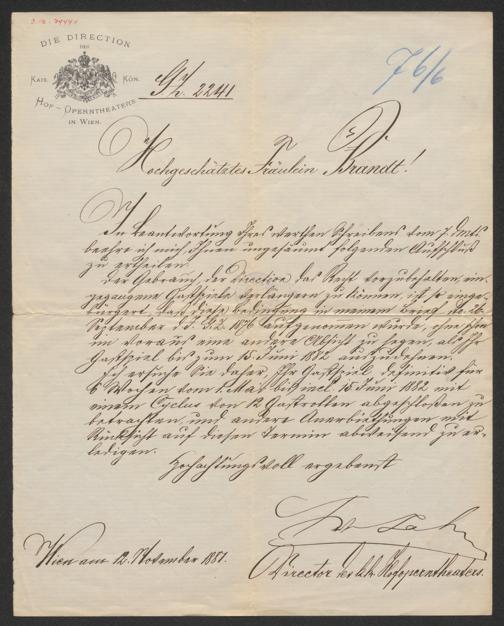 DIE DIRECTION
DES
KAIS. KÖN.
HOF-OPERNTHEATERS
IN WIEN.
G. Z. 2241
76/6
Hochgeschätztes Fräulein Brandt!
In Beantwortung Ihres werthen Schreibens vom 7. d. Mts
beehre ich mich Ihnen ungesäumt folgenden Aufschluß
zu ertheilen.
Der Gebrauch, der Direction das Recht vorzubehalten, ein-
gegangene Gastspiele verlängern zu können, ist so einge-
bürgert, daß diese Bedingung in meinem Brief
September d. J. aufgenommen wurde, ohne schon
im voraus eine andere Absicht zu hegen, als Ihr
Gastspiel bis zum 15 Juni 1882 auszudehnen.
Ich ersuche Sie daher, Ihr Gastspiel definitiv für
6 Wochen vom 1. Mai bis incl. 15 Juni 1882 mit
einem Cyclus von 12 Gastrollen abgeschloßen zu
betrachten, und andere Anerbiethungen mit
Rücksicht auf diesen Termin abweisend zu er-
ledigen.
Hochachtungsvoll ergebenst
Wien am 12. November 1881.
Director des k.k. Hofoperntheaters.